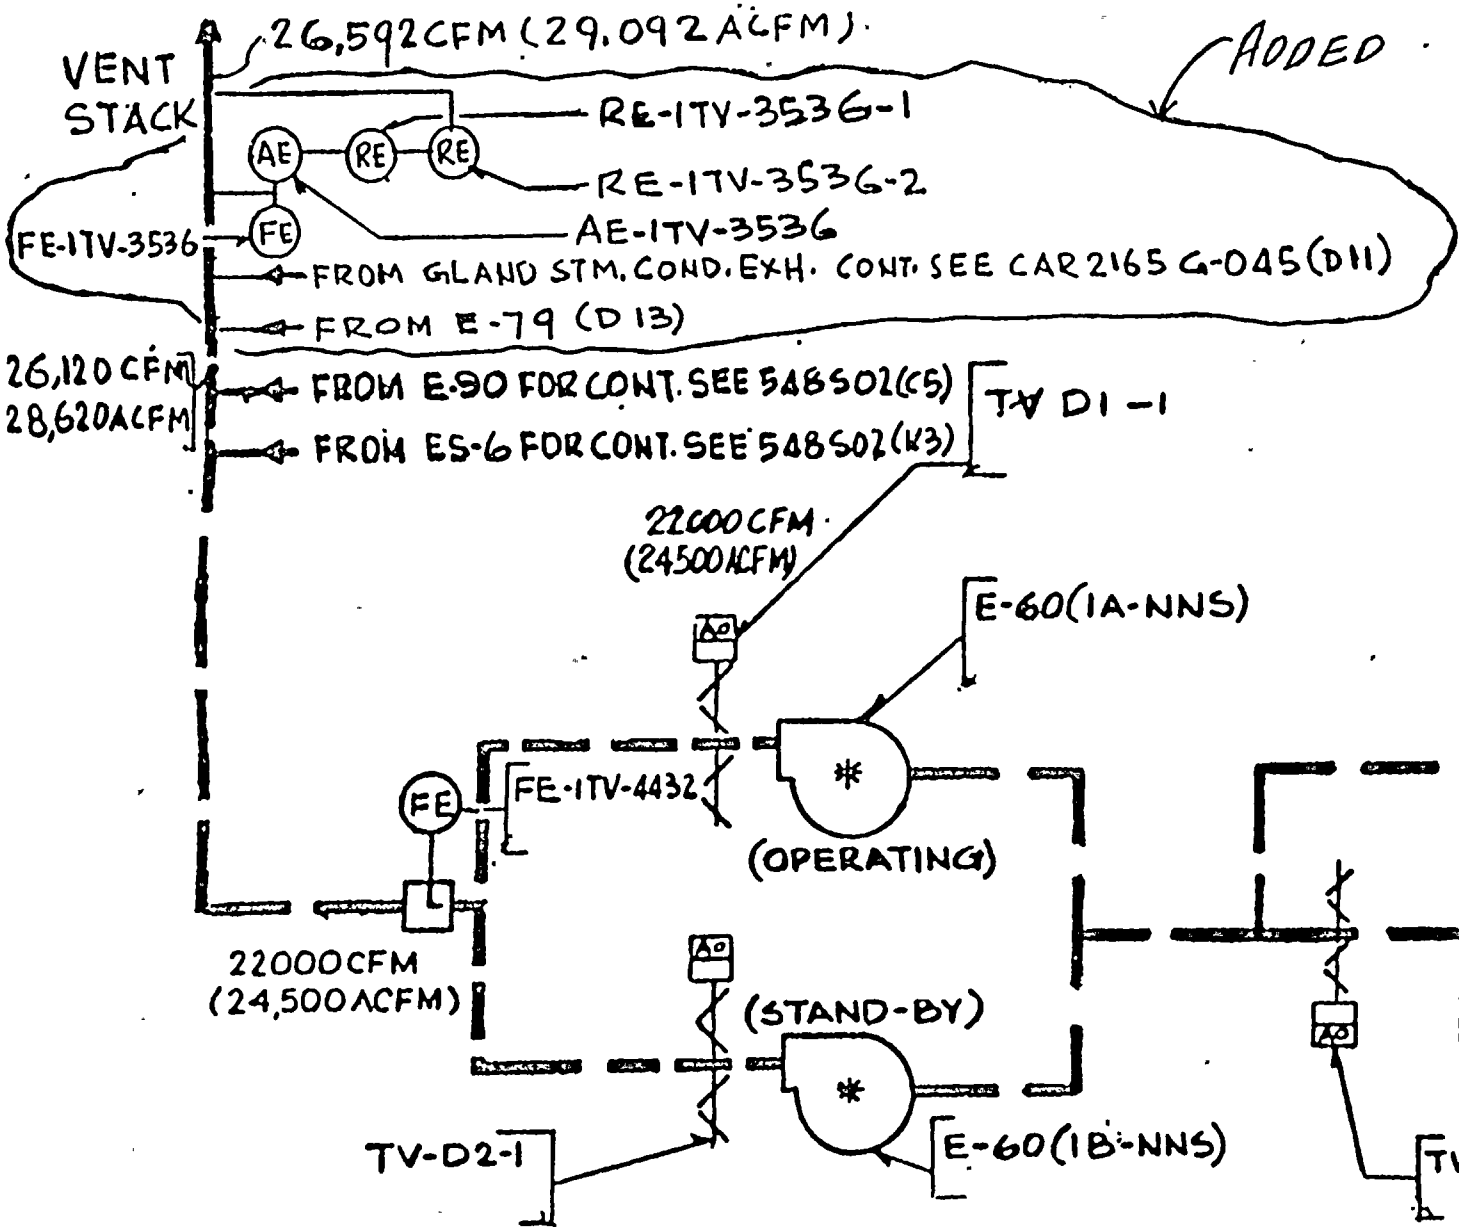 26,592 CFM (29,092 ACFM)
ADDED
VENT
STACK
RE-1TV-3536-1
AE
RE
RE
RE-1TV-3536-2
AE-1TV-3536
FE-1TV-3536
FE
FROM GLAND STM. COND. EXH. CONT. SEE CAR 2165 G-045 (D11)
FROM E-79 (D13)
26,120 CFM
28,620 ACFM
FROM E-90 FOR CONT. SEE 548S02 (C5)
FROM ES-6 FOR CONT. SEE 548S02 (K3)
TV D1-1
22000 CFM
(24500 ACFM)
AO
E-60 (1A-NNS)
FE
FE-1TV-4432
(OPERATING)
22000 CFM
(24,500 ACFM)
AO
(STAND-BY)
AO
TV-D2-1
E-60 (1B-NNS)
TV